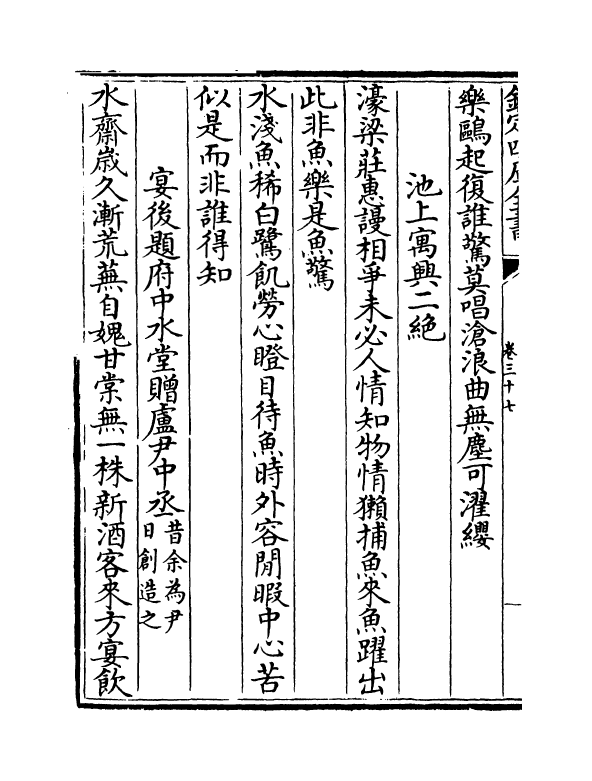 欽定四庫全書
卷三十七
樂鷗起復誰驚莫唱滄浪曲無塵可濯纓
池上寓興二絶
濠梁莊惠謾相爭未必人情知物情獺捕魚來魚躍出
此非魚樂是魚驚
水淺魚稀白鷺飢勞心瞪目待魚時外容閒暇中心苦
似是而非誰得知
宴後題府中水堂贈盧尹中丞昔余為尹
日創造之
水齋歳久漸荒蕪自媿甘棠無一株新酒客來方宴飲